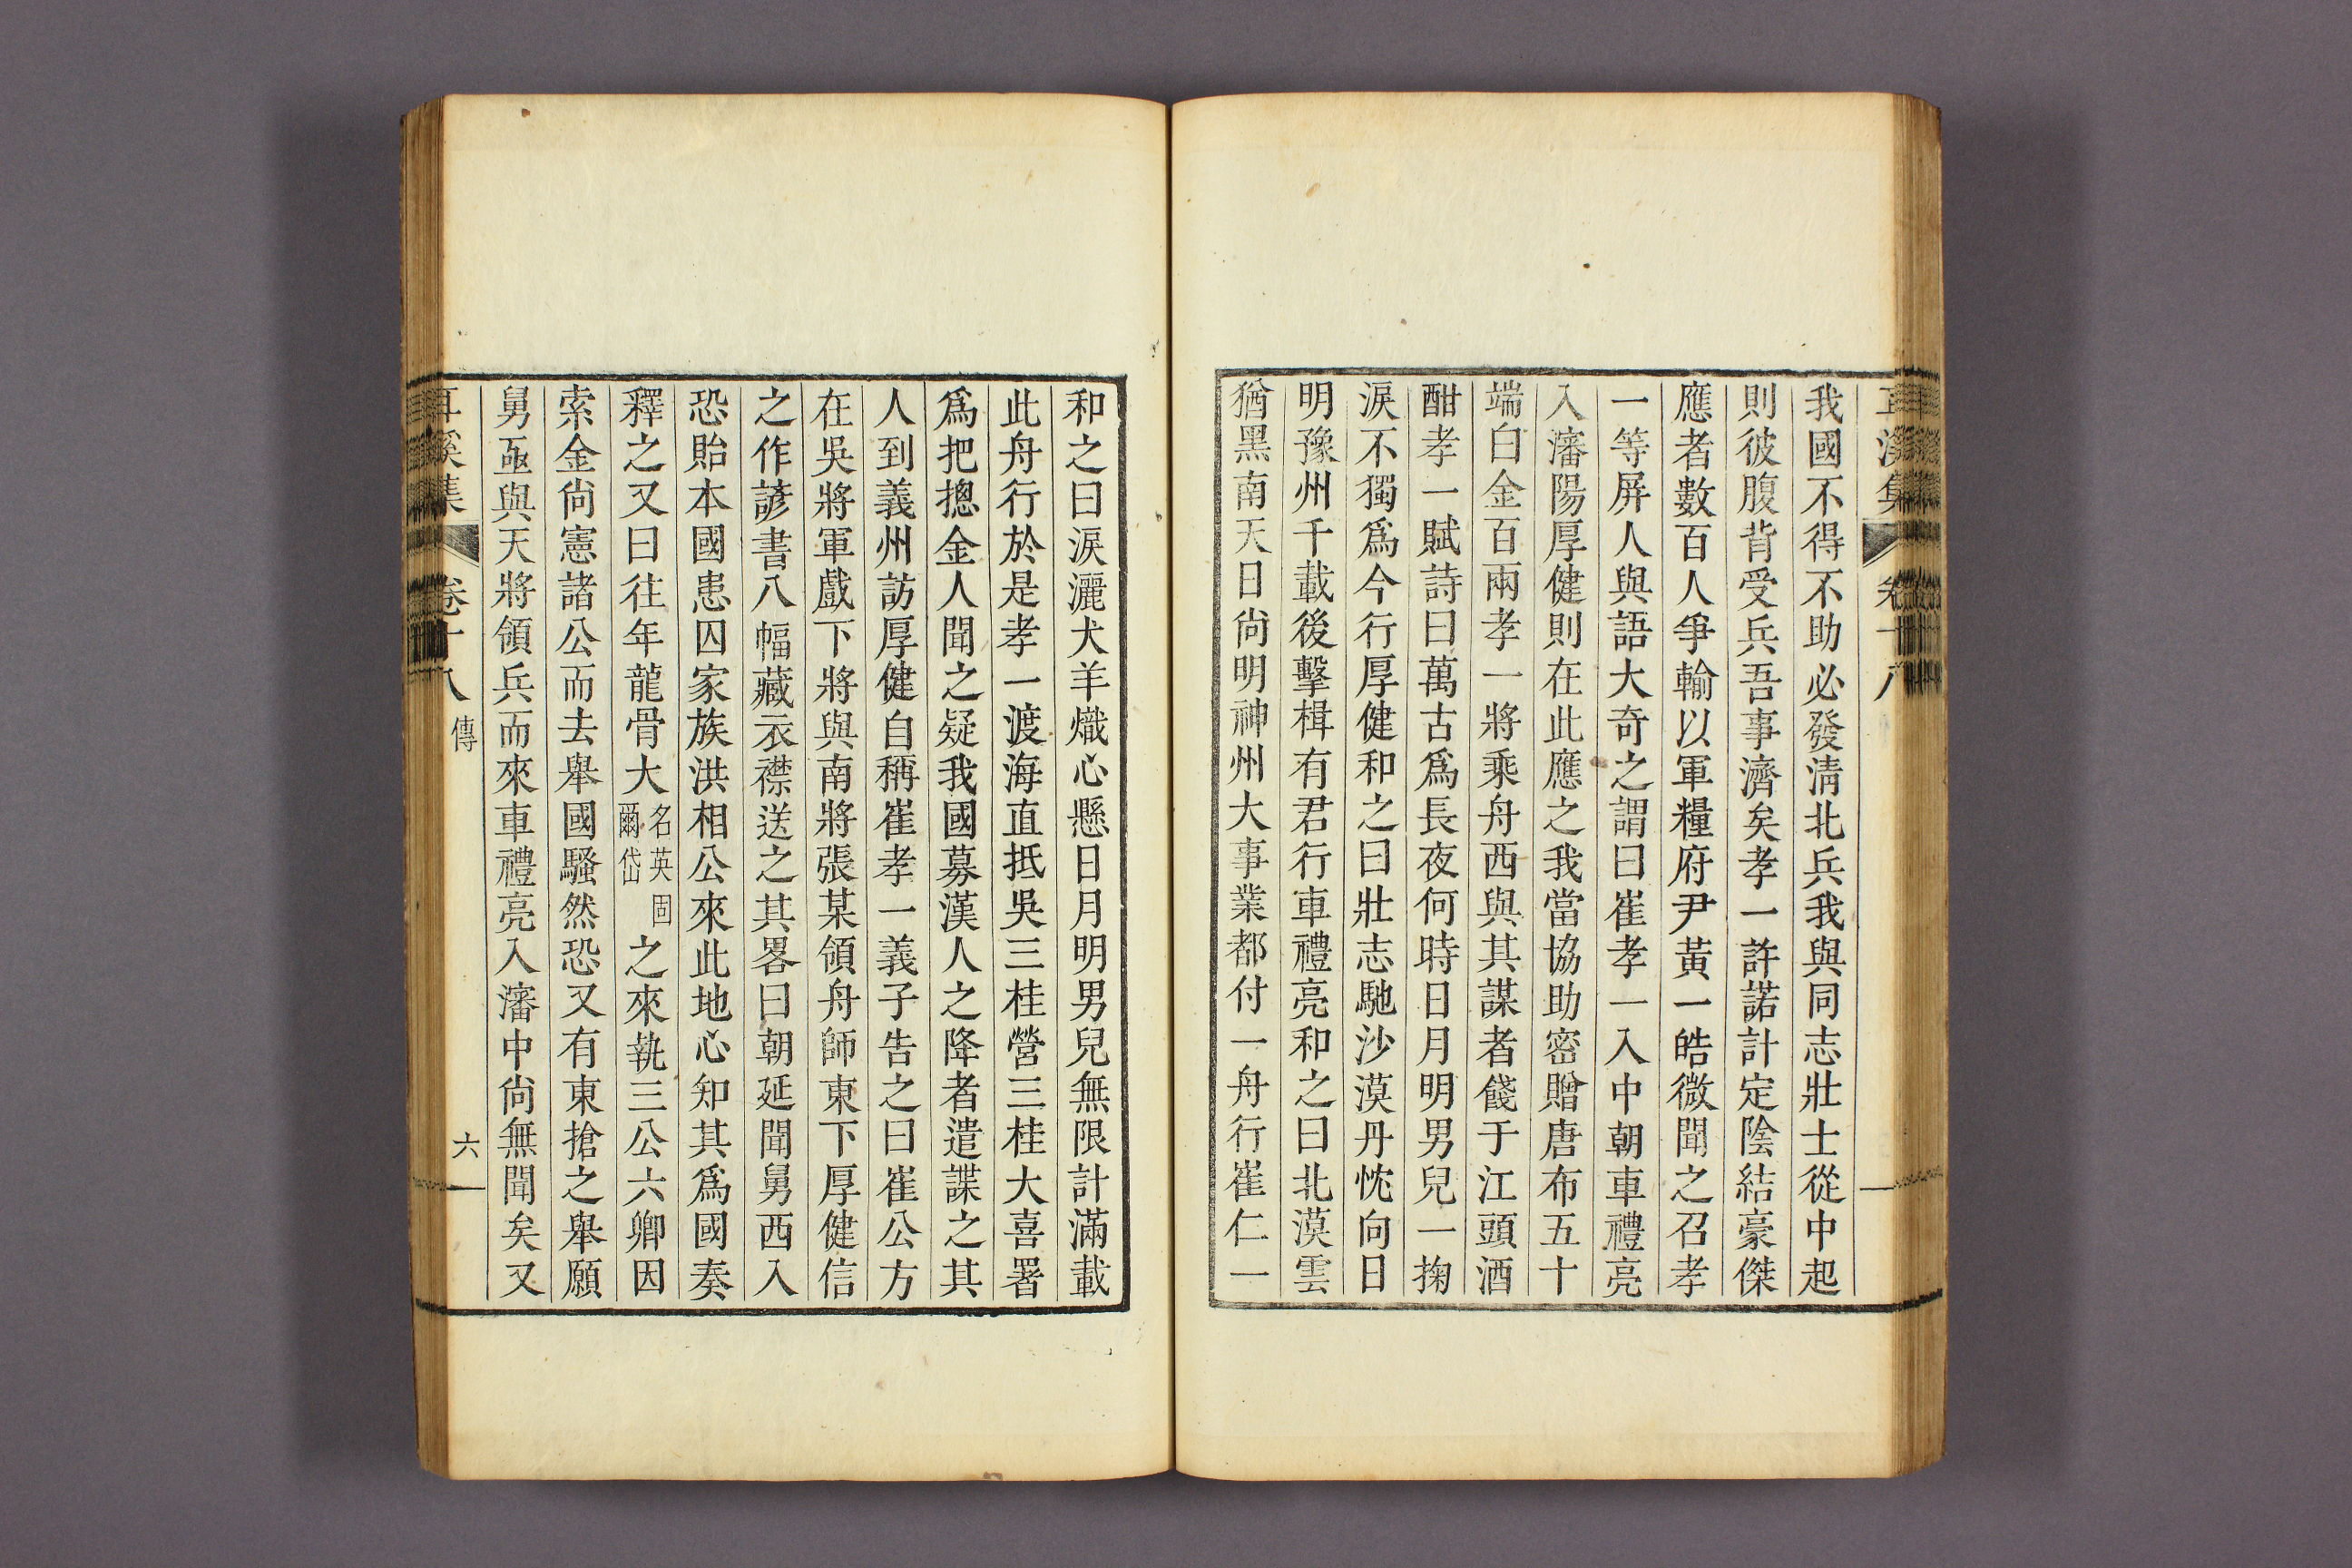 耳溪集 卷十八
我國不得不助必發淸北兵我與同志壯士從中起
則彼腹背受兵吾事濟矣孝一許諾計定陰結豪傑
應者數百人爭輸以軍糧府尹黃一皓微聞之召孝
一等屏人與語大奇之謂曰崔孝一入中朝車禮亮
入瀋陽厚健則在此應之我當協助密贈唐布五十
端白金百兩孝一將乘舟西與其謀者餞于江頭酒
酣孝一賦詩曰萬古爲長夜何時日月明男兒一掬
淚不獨爲今行厚健和之曰壯志馳沙漠丹忱向日
明豫州千載後擊楫有君行車禮亮和之曰北漠雲
猶黑南天日尙明神州大事業都付一舟行崔仁一
和之曰淚灑犬羊熾心懸日月明男兒無限計滿載
此舟行於是孝一渡海直抵吳三桂營三桂大喜署
爲把摠金人聞之疑我國募漢人之降者遣諜之其
人到義州訪厚健自稱崔孝一義子告之曰崔公方
在吳將軍戲下將與南將張某領舟師東下厚健信
之作諺書八幅藏衣襟送之其畧曰朝廷聞舅西入
恐貽本國患囚家族洪相公來此地心知其爲國奏
釋之又曰往年龍骨大名英固爾岱之來執三公六卿因
索金尙憲諸公而去舉國騷然恐又有東搶之舉願
舅亟與天將領兵而來車禮亮入瀋中尙無聞矣又
耳溪集 卷十八 傳 六